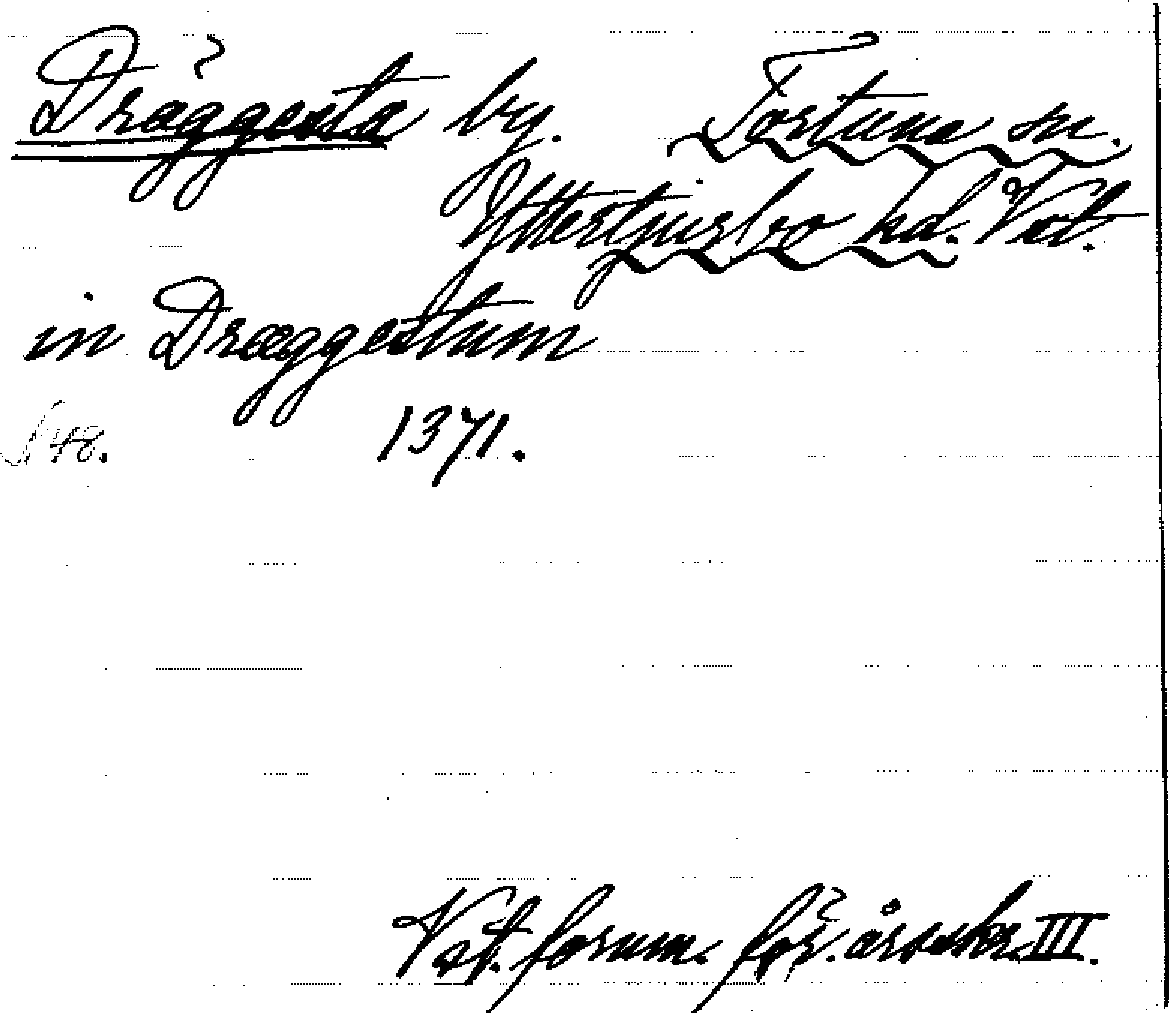 Dräggesta by. Tortuna sn.
Yttertjurbo hd. Vstl.
in Dræggestum
S. 48. 1371.
Vst. fornm. för. årsskr. III.